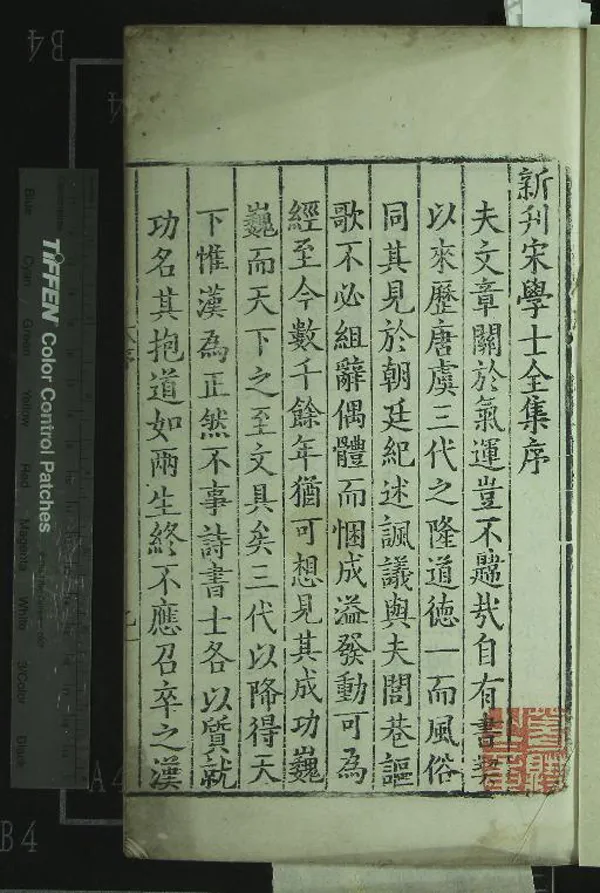 新刋宋學士全集序
夫文章關於氣運豈不韙㢤自有書契
以來歷唐虞三代之隆道徳一而風俗
同其見於朝廷紀述諷議與夫閭巷謳
歌不必組辭偶體而悃成溢發動可為
經至今數千餘年猶可想見其成功巍
巍而天下之至文具矣三代以降得天
下惟漢為正然不事詩書士各以質就
功名其抱道如兩生終不應召卒之漢
B4
A4
TIFFEN Color Control Patches
Blue
Cyan
Green
Yellow
Red
Magenta
White
3/Color
Black
B4